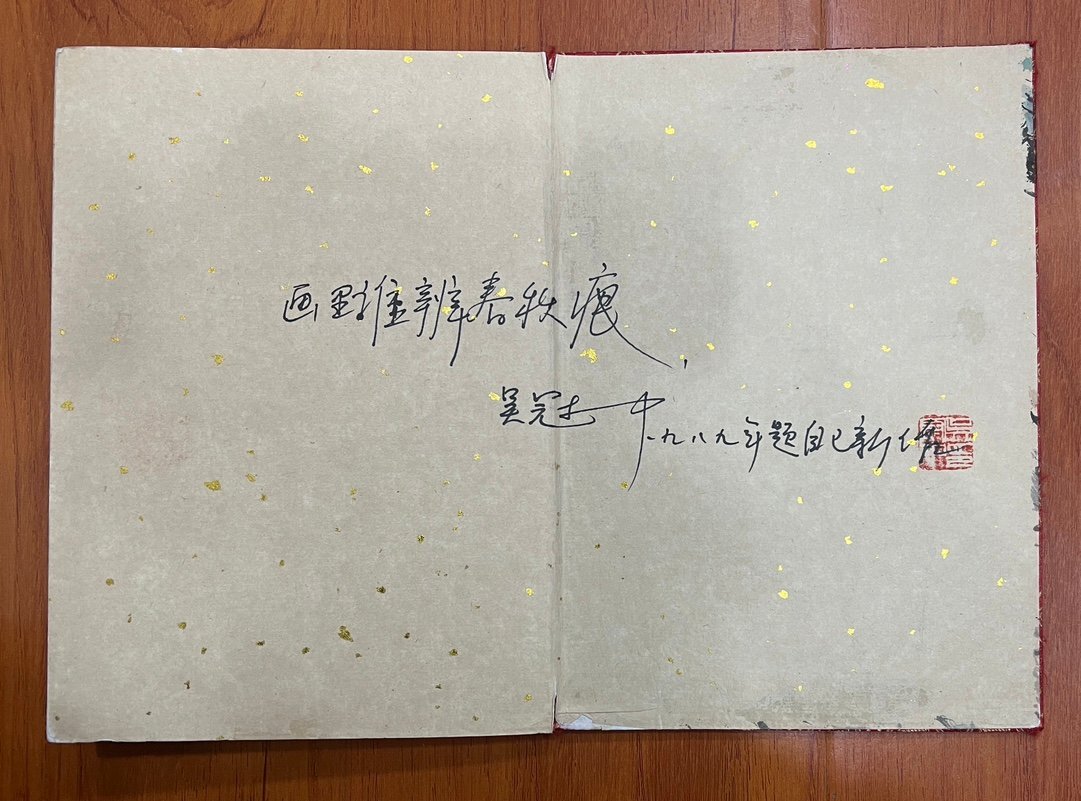 画里难辨春秋痕，
吴冠中
一九八九年题自己新作